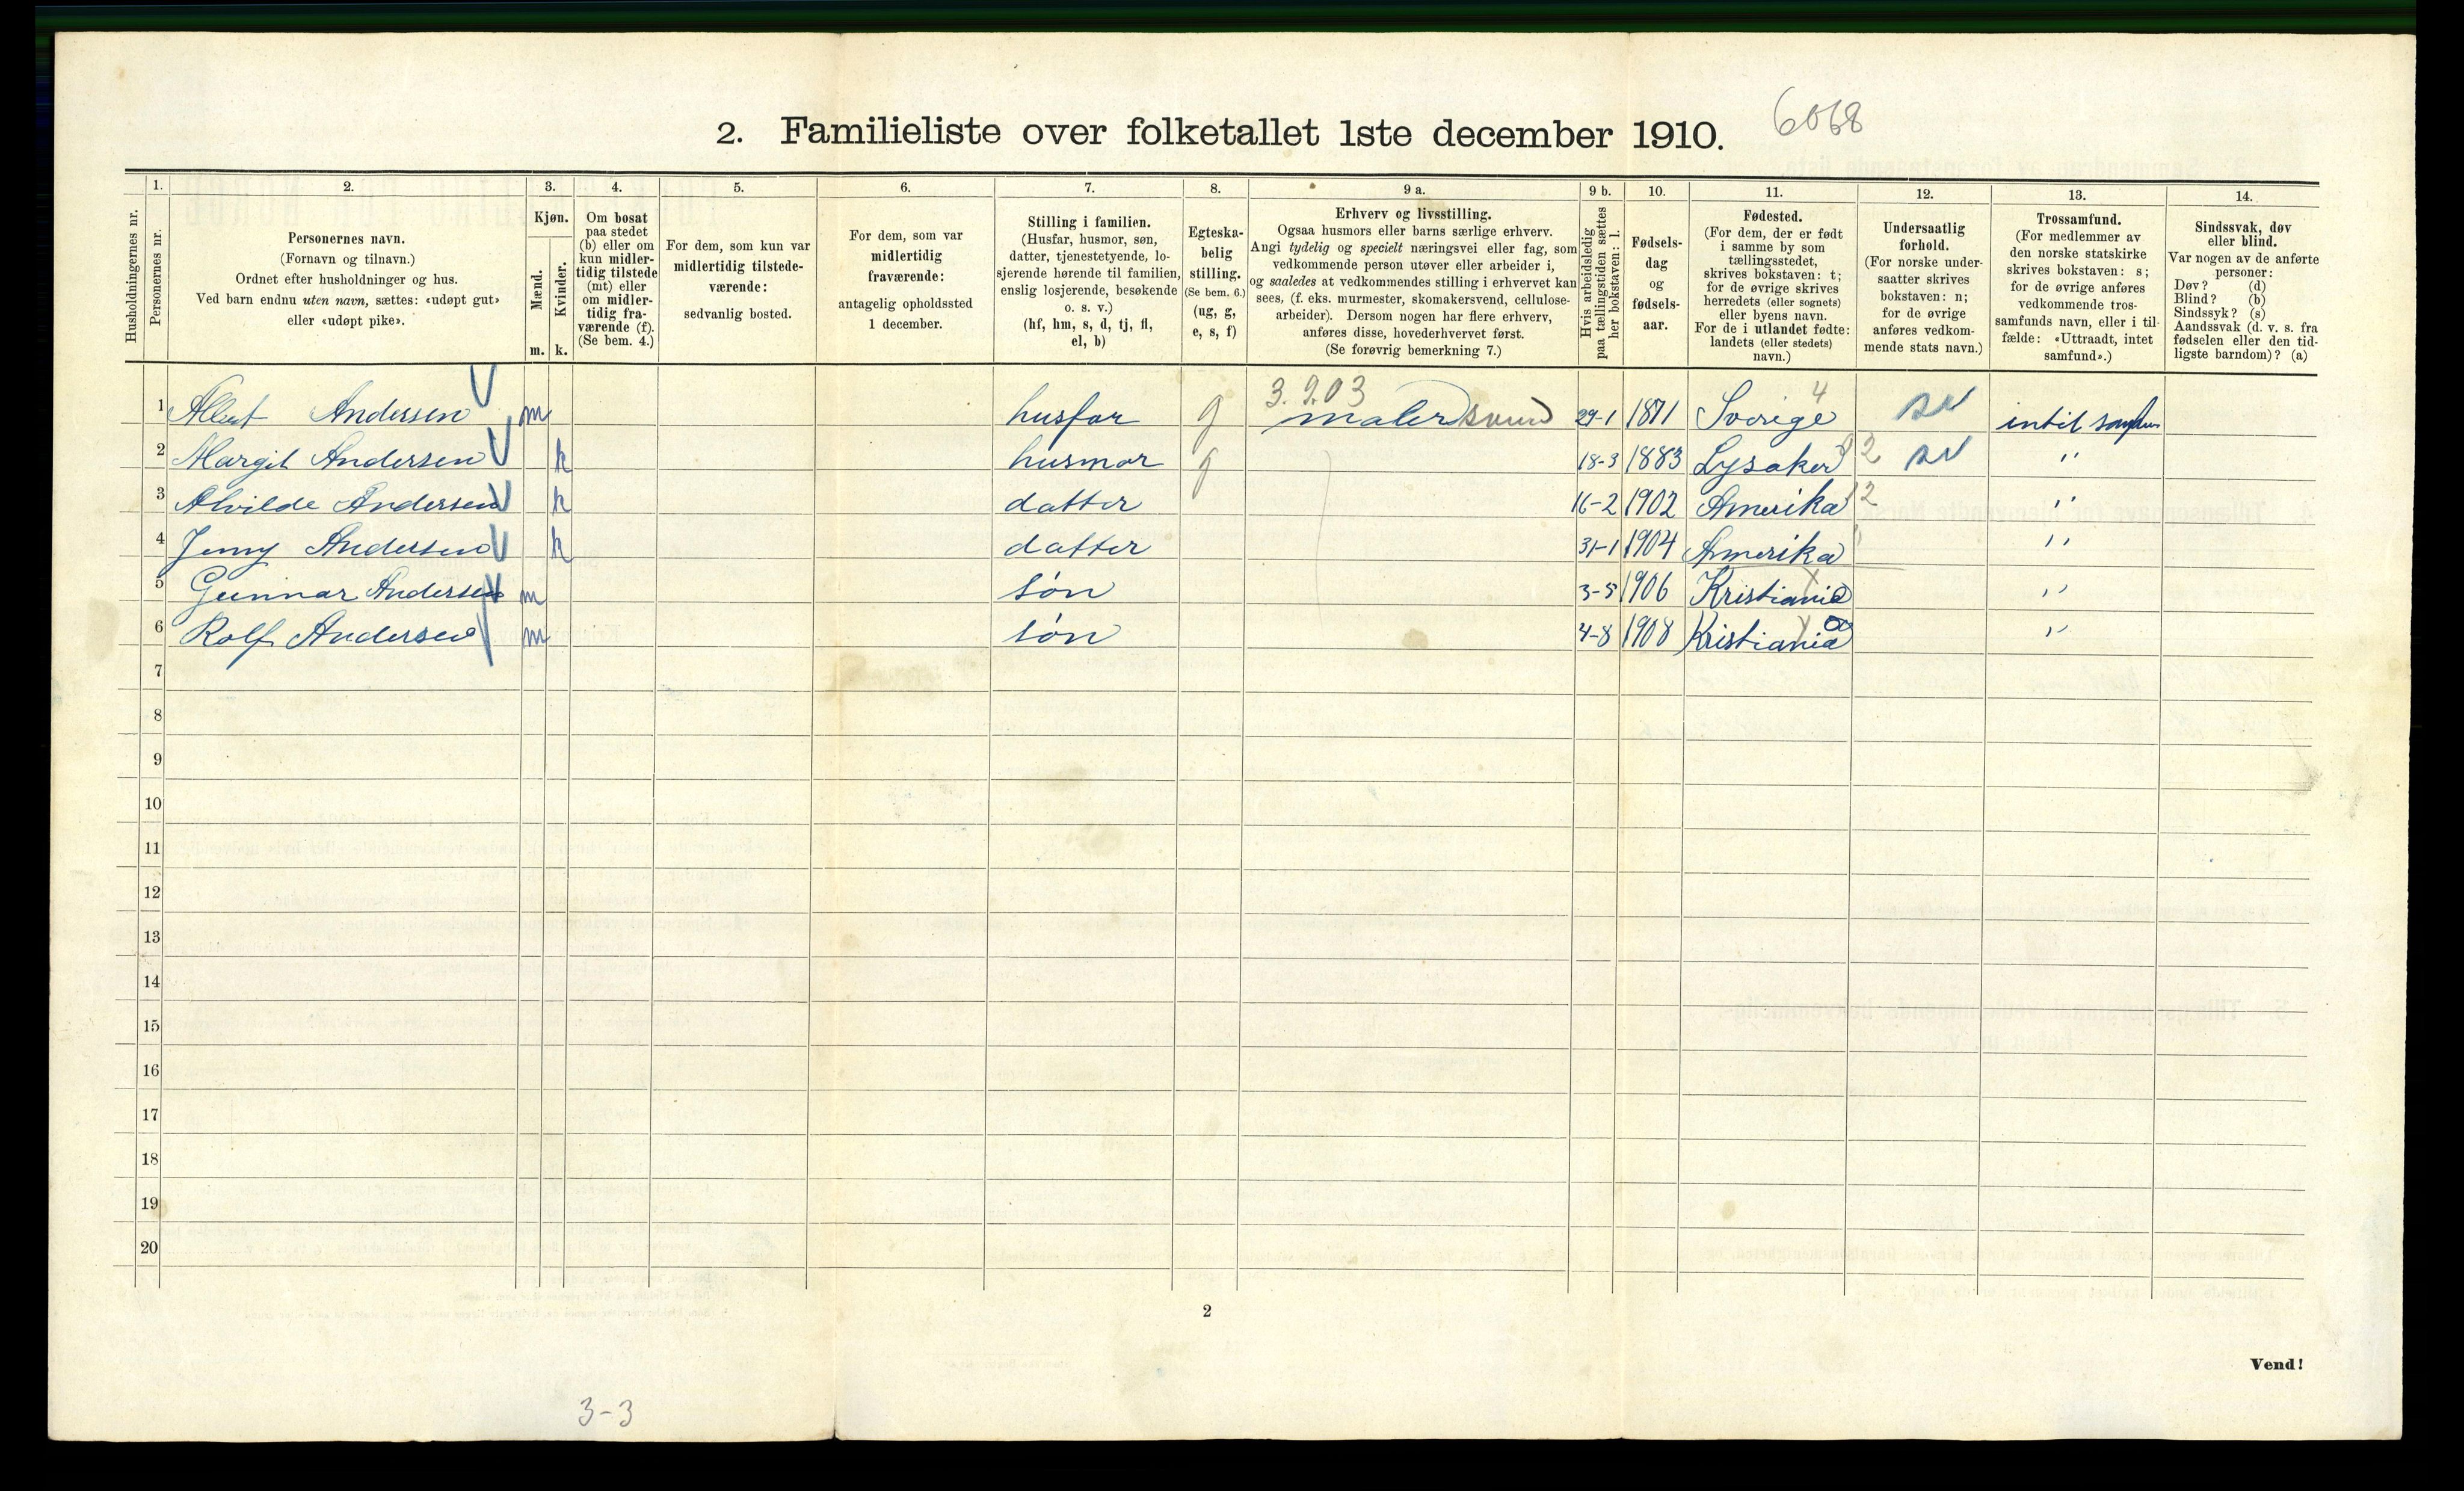 2. Familieliste over folketallet 1ste december 1910. 6068
Husholdningernes nr.
1.
Personernes nr.
2.
Personernes navn.
(Fornavn og tilnavn.)
Ordnet efter husholdninger og hus.
Ved barn endnu uten navn, sættes: «udøpt gut»
eller «udøpt pike».
3.
Kjøn.
Mænd.
Kvinder.
m. k.
4.
Om bosat
paa stedet
(b) eller om
kun midler-
tidig tilstede
(mt) eller
om midler-
tidig fra-
værende (f).
(Se bem. 4.)
5.
For dem, som kun var
midlertidig tilstede-
værende:
sedvanlig bosted.
6.
For dem, som var
midlertidig
fraværende:
antagelig opholdssted
1 december.
7.
Stilling i familien.
(Husfar, husmor, søn,
datter, tjenestetyende, lo-
sjerende hørende til familien,
enslig losjerende, besøkende
o. s. v.)
(hf, hm, s, d, tj, fl,
el, b)
8.
Egteska-
belig
stilling.
(Se bem. 6.)
(ug, g,
e, s, f)
9 a.
Erhverv og livsstilling.
Ogsaa husmors eller barns særlige erhverv.
Angi tydelig og specielt næringsvei eller fag, som
vedkommende person utøver eller arbeider i,
og saaledes at vedkommendes stilling i erhvervet kan
sees, (f. eks. murmester, skomakersvend, cellulose-
arbeider). Dersom nogen har flere erhverv,
anføres disse, hovederhvervet først.
(Se forøvrig bemerkning 7.)
9 b.
Hvis arbeidsledig
paa tællingstiden sættes
her bokstaven: l.
10.
Fødsels-
dag
og
fødsels-
aar.
11.
Fødested.
(For dem, der er født
i samme by som
tællingsstedet,
skrives bokstaven: t;
for de øvrige skrives
herredets (eller sognets)
eller byens navn.
For de i utlandet fødte:
landets (eller stedets)
navn.)
12.
Undersatlig
forhold.
(For norske under-
saatter skrives
bokstaven: n;
for de øvrige
anføres vedkom-
mende stats navn.)
13.
Trossamfund.
(For medlemmer av
den norske statskirke
skrives bokstaven: s;
for de øvrige anføres
vedkommende tros-
samfunds navn, eller i til-
fælde: «Uttraadt, intet
samfund».)
14.
Sindssvak, døv
eller blind.
Var nogen av de anførte
personer:
Døv? (d)
Blind? (b)
Sindssyk? (s)
Aandssvak (d. v. s. fra
fødselen eller den tid-
ligste barndom)? (a)
3.9.03 4
1 Albert Andersen m husfar g maler 29-1 1871 Sverige sv intil
2 Margit Andersen k husmor g 18-3 1883 Lysaker 2 sv "
3 Alvilde Andersen k datter 16-2 1902 Amerika 2 "
4 Jenny Andersen k datter 31-1 1904 Amerika "
5 Gunnar Andersen m søn 3-5 1906 Kristiania "
6 Rolf Andersen m søn 4-8 1908 Kristiania "
7
8
9
10
11
12
13
14
15
16
17
18
19
20
2
Vend!
3-3